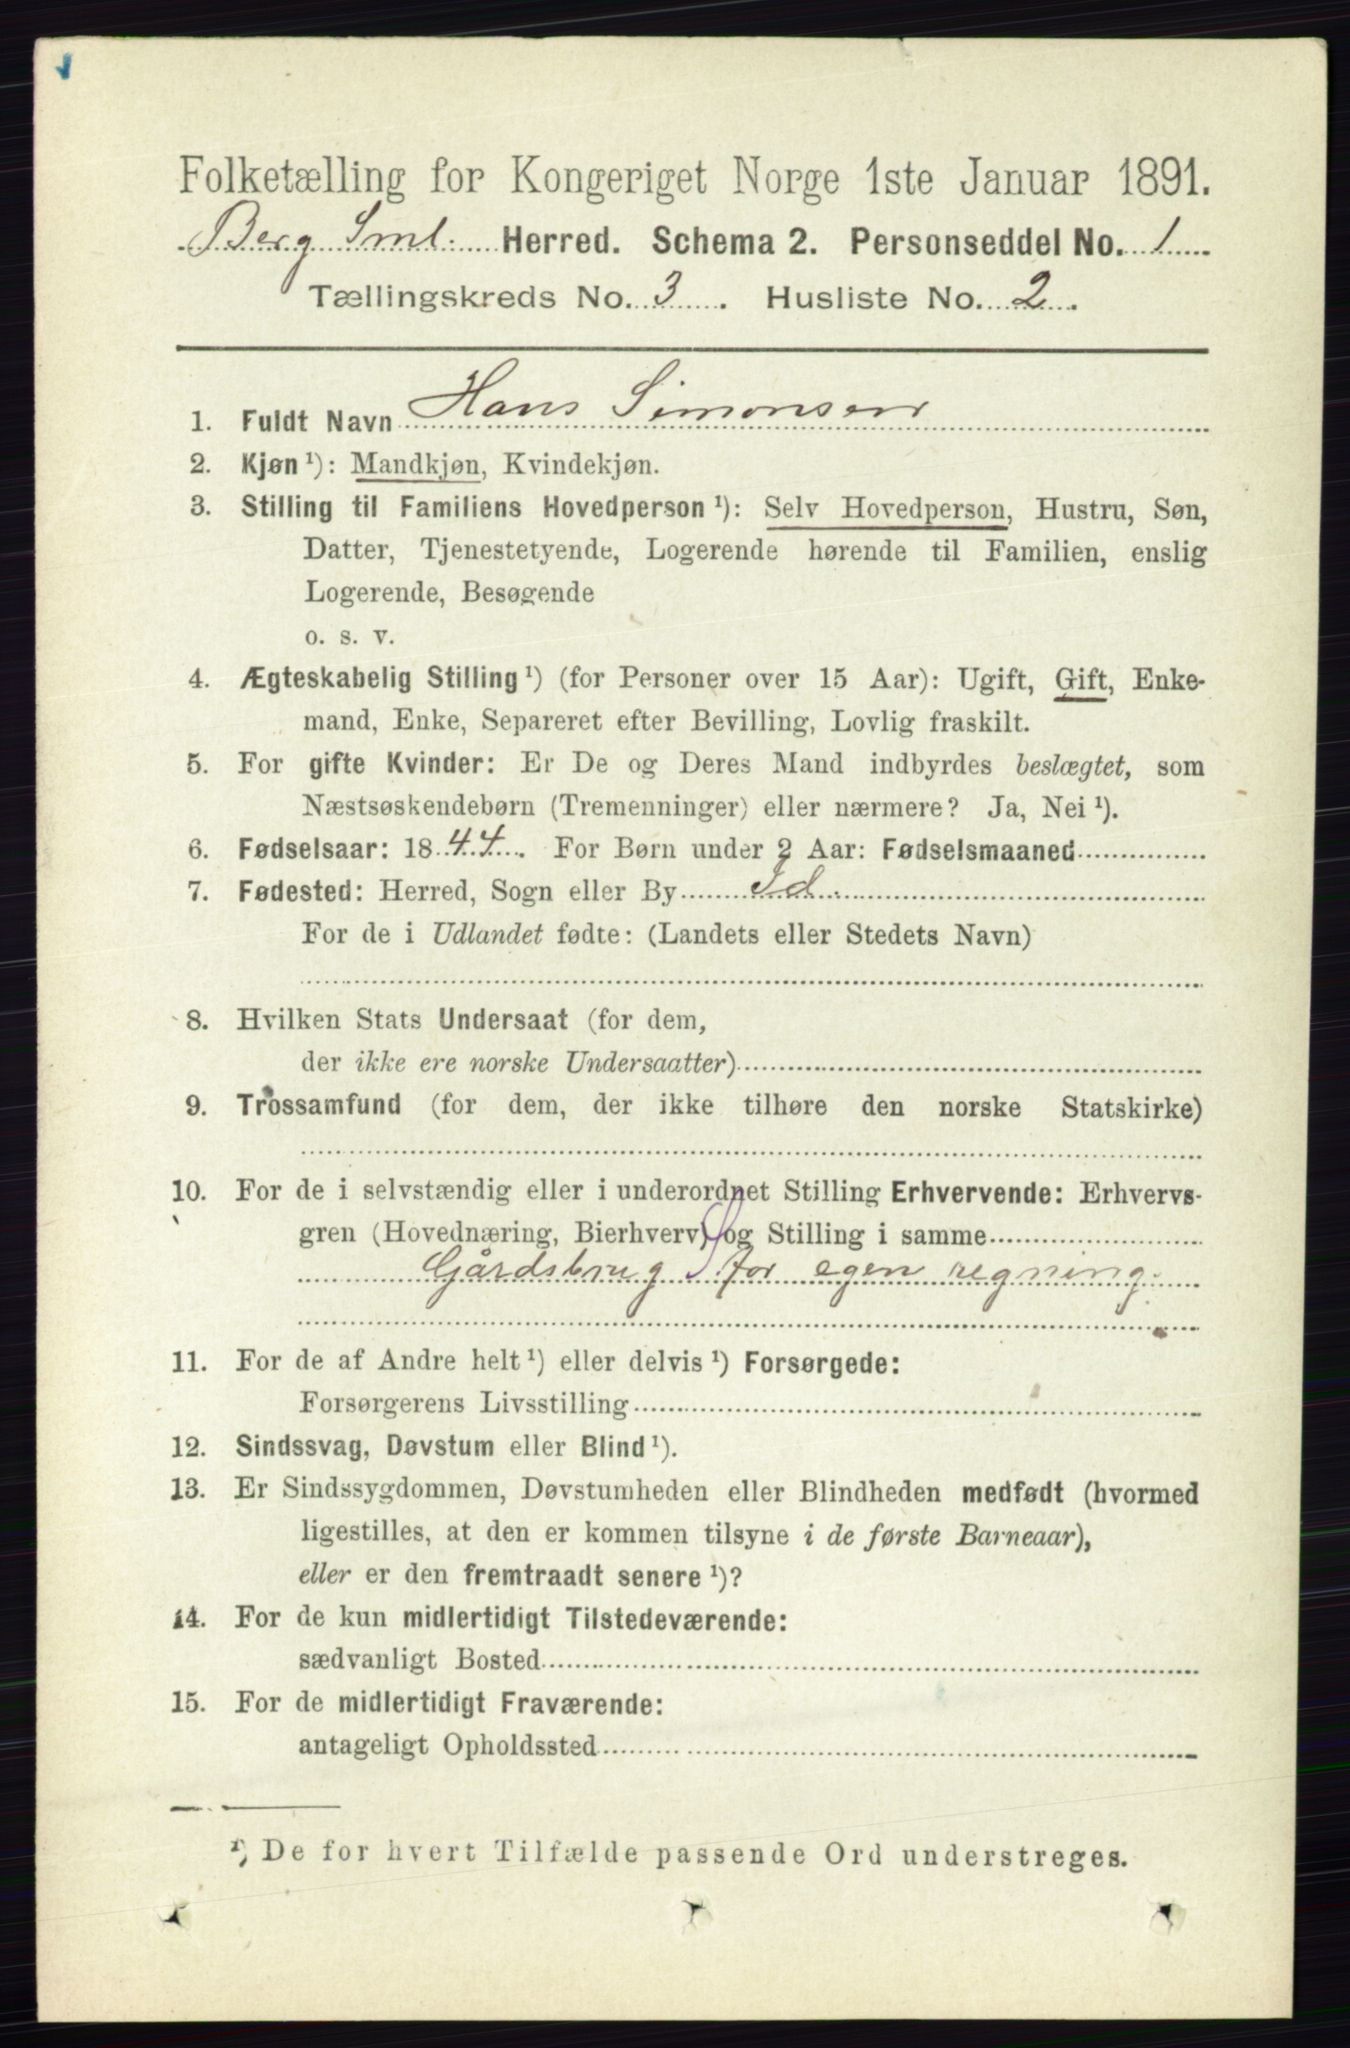 Folketælling for Kongeriget Norge 1ste Januar 1891.
Berg Sml. Herred. Schema 2. Personseddel No. 1
Tællingskreds No. 3. Husliste No. 2.
1. Fuldt Navn Hans Simonsen
2. Kjøn ¹): Mandkjøn, Kvindekjøn.
3. Stilling til Familiens Hovedperson ¹): Selv Hovedperson, Hustru, Søn,
Datter, Tjenestetyende, Logerende hørende til Familien, enslig
Logerende, Besøgende
o. s. v.
4. Ægteskabelig Stilling ¹) (for Personer over 15 Aar): Ugift, Gift, Enke-
mand, Enke, Separeret efter Bevilling, Lovlig fraskilt.
5. For gifte Kvinder: Er De og Deres Mand indbyrdes beslægtet, som
Næstsøskendebørn (Tremenninger) eller nærmere? Ja, Nei ¹).
6. Fødselsaar: 1844. For Børn under 2 Aar: Fødselsmaaned
7. Fødested: Herred, Sogn eller By Id.
For de i Udlandet fødte: (Landets eller Stedets Navn)
8. Hvilken Stats Undersaat (for dem,
der ikke ere norske Undersaatter)
9. Trossamfund (for dem, der ikke tilhøre den norske Statskirke)
10. For de i selvstændig eller i underordnet Stilling Erhvervende: Erhvervs-
gren (Hovednæring, Bierhverv) og Stilling i samme
Gårdsbrug S for egen regning.
11. For de af Andre helt ¹) eller delvis ¹) Forsørgede:
Forsørgerens Livsstilling
12. Sindssvag, Døvstum eller Blind ¹).
13. Er Sindssygdommen, Døvstumheden eller Blindheden medfødt (hvormed
ligestilles, at den er kommen tilsyne i de første Barneaar),
eller er den fremtraadt senere ¹)?
14. For de kun midlertidigt Tilstedeværende:
sædvanligt Bosted
15. For de midlertidigt Fraværende:
antageligt Opholdssted
¹) De for hvert Tilfælde passende Ord understreges.